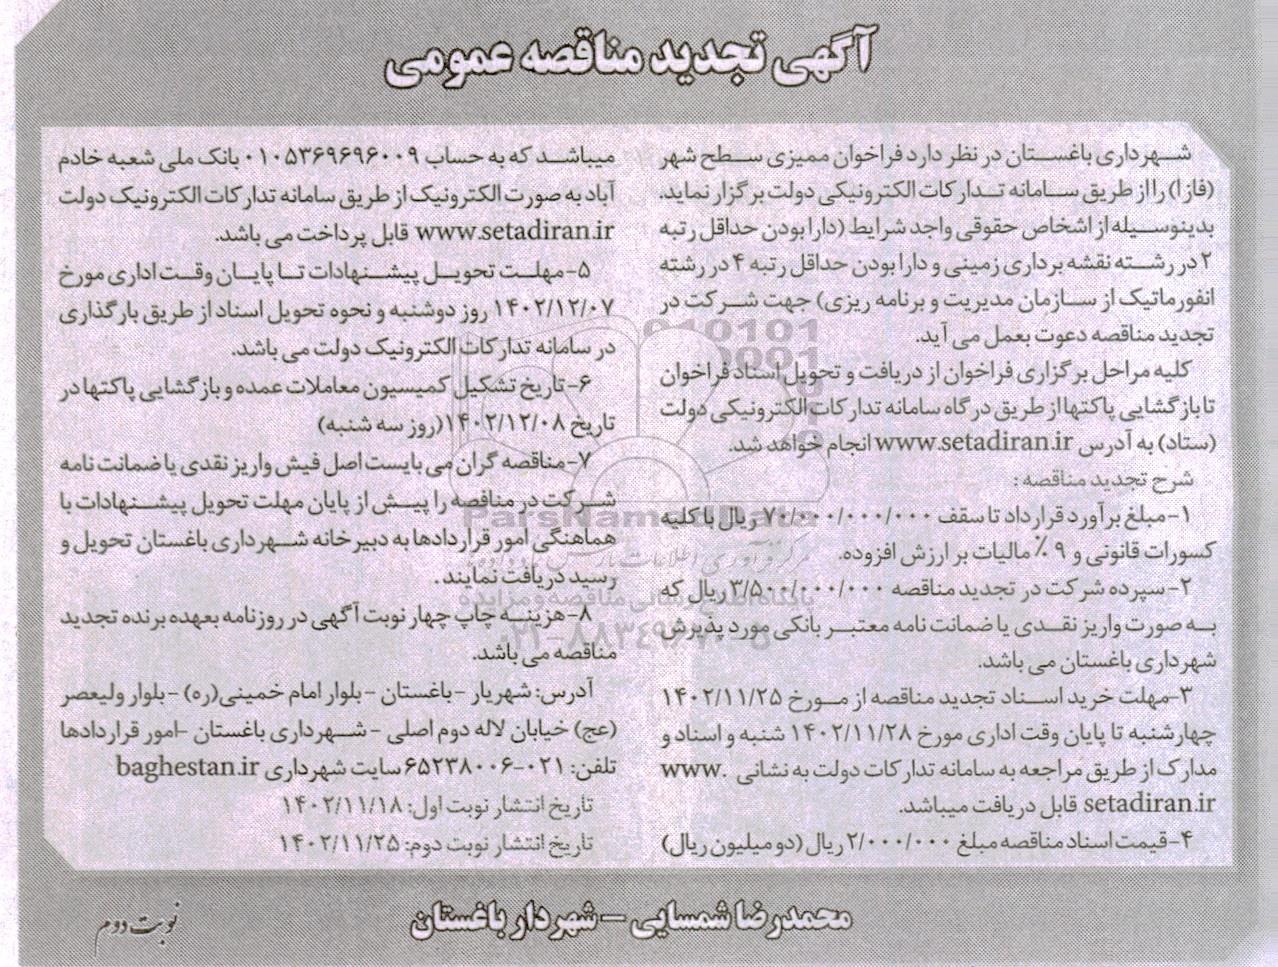 آگهی تجدید مناقصه عمومی
شهرداری باغستان در نظر دارد فراخوان ممیزی سطح شهر
(فاز۱) را از طریق سامانه تدارکات الکترونیکی دولت برگزار نماید.
بدینوسیله از اشخاص حقوقی واجد شرایط (دارا بودن حداقل رتبه
۲ در رشته نقشه برداری زمینی و دارا بودن حداقل رتبه ۴ در رشته
انفورماتیک از سازمان مدیریت و برنامه ریزی) جهت شرکت در
تجدید مناقصه دعوت بعمل می آید.
کلیه مراحل برگزاری فراخوان از دریافت و تحویل اسناد فراخوان
تا بازگشایی پاکتها از طریق درگاه سامانه تدارکات الکترونیکی دولت
(ستاد) به آدرس www.setadiran.ir انجام خواهد شد.
شرح تجدید مناقصه :
۱-مبلغ برآورد قرارداد تا سقف ۷۰/۰۰۰/۰۰۰/۰۰۰ ریال با کلیه
کسورات قانونی و ۹ ٪ مالیات بر ارزش افزوده.
۲-سپرده شرکت در تجدید مناقصه ۳/۵۰۰/۰۰۰/۰۰۰ ریال که
به صورت واریز نقدی یا ضمانت نامه معتبر بانکی مورد پذیرش
شهرداری باغستان می باشد.
۳-مهلت خرید اسناد تجدید مناقصه از مورخ ۱۴۰۲/۱۱/۲۵
چهارشنبه تا پایان وقت اداری مورخ ۱۴۰۲/۱۱/۲۸ شنبه و اسناد و
مدارک از طریق مراجعه به سامانه تدارکات دولت به نشانی www.
setadiran.ir قابل دریافت میباشد.
۴-قیمت اسناد مناقصه مبلغ ۲/۰۰۰/۰۰۰ ریال (دو میلیون ریال)
میباشد که به حساب ۰۱۰۵۳۶۹۶۹۶۰۰۹ بانک ملی شعبه خادم
آباد به صورت الکترونیک از طریق سامانه تدارکات الکترونیک دولت
www.setadiran.ir قابل پرداخت می باشد.
۵-مهلت تحویل پیشنهادات تا پایان وقت اداری مورخ
۱۴۰۲/۱۲/۰۷ روز دوشنبه و نحوه تحویل اسناد از طریق بارگذاری
در سامانه تدارکات الکترونیک دولت می باشد.
۶-تاریخ تشکیل کمیسیون معاملات عمده و بازگشایی پاکتها در
تاریخ ۱۴۰۲/۱۲/۰۸(روز سه شنبه)
۷-مناقصه گران می بایست اصل فیش واریز نقدی یا ضمانت نامه
شرکت در مناقصه را پیش از پایان مهلت تحویل پیشنهادات با
هماهنگی امور قراردادها به دبیرخانه شهرداری باغستان تحویل و
رسید دریافت نمایند .
۸-هزینه چاپ چهار نوبت آگهی در روزنامه بعهده برنده تجدید
مناقصه می باشد.
آدرس: شهریار -باغستان -بلوار امام خمینی(ره) -بلوار ولیعصر
(عج) خیابان لاله دوم اصلی - شهرداری باغستان -امور قراردادها
تلفن: ۰۲۱-۶۵۲۳۸۰۰۶ سایت شهرداری baghestan.ir
تاریخ انتشار نوبت اول: ۱۴۰۲/۱۱/۱۸
تاریخ انتشار نوبت دوم: ۱۴۰۲/۱۱/۲۵
محمدرضا شمسایی - شهردار باغستان
نوبت دوم
ParsNamadData